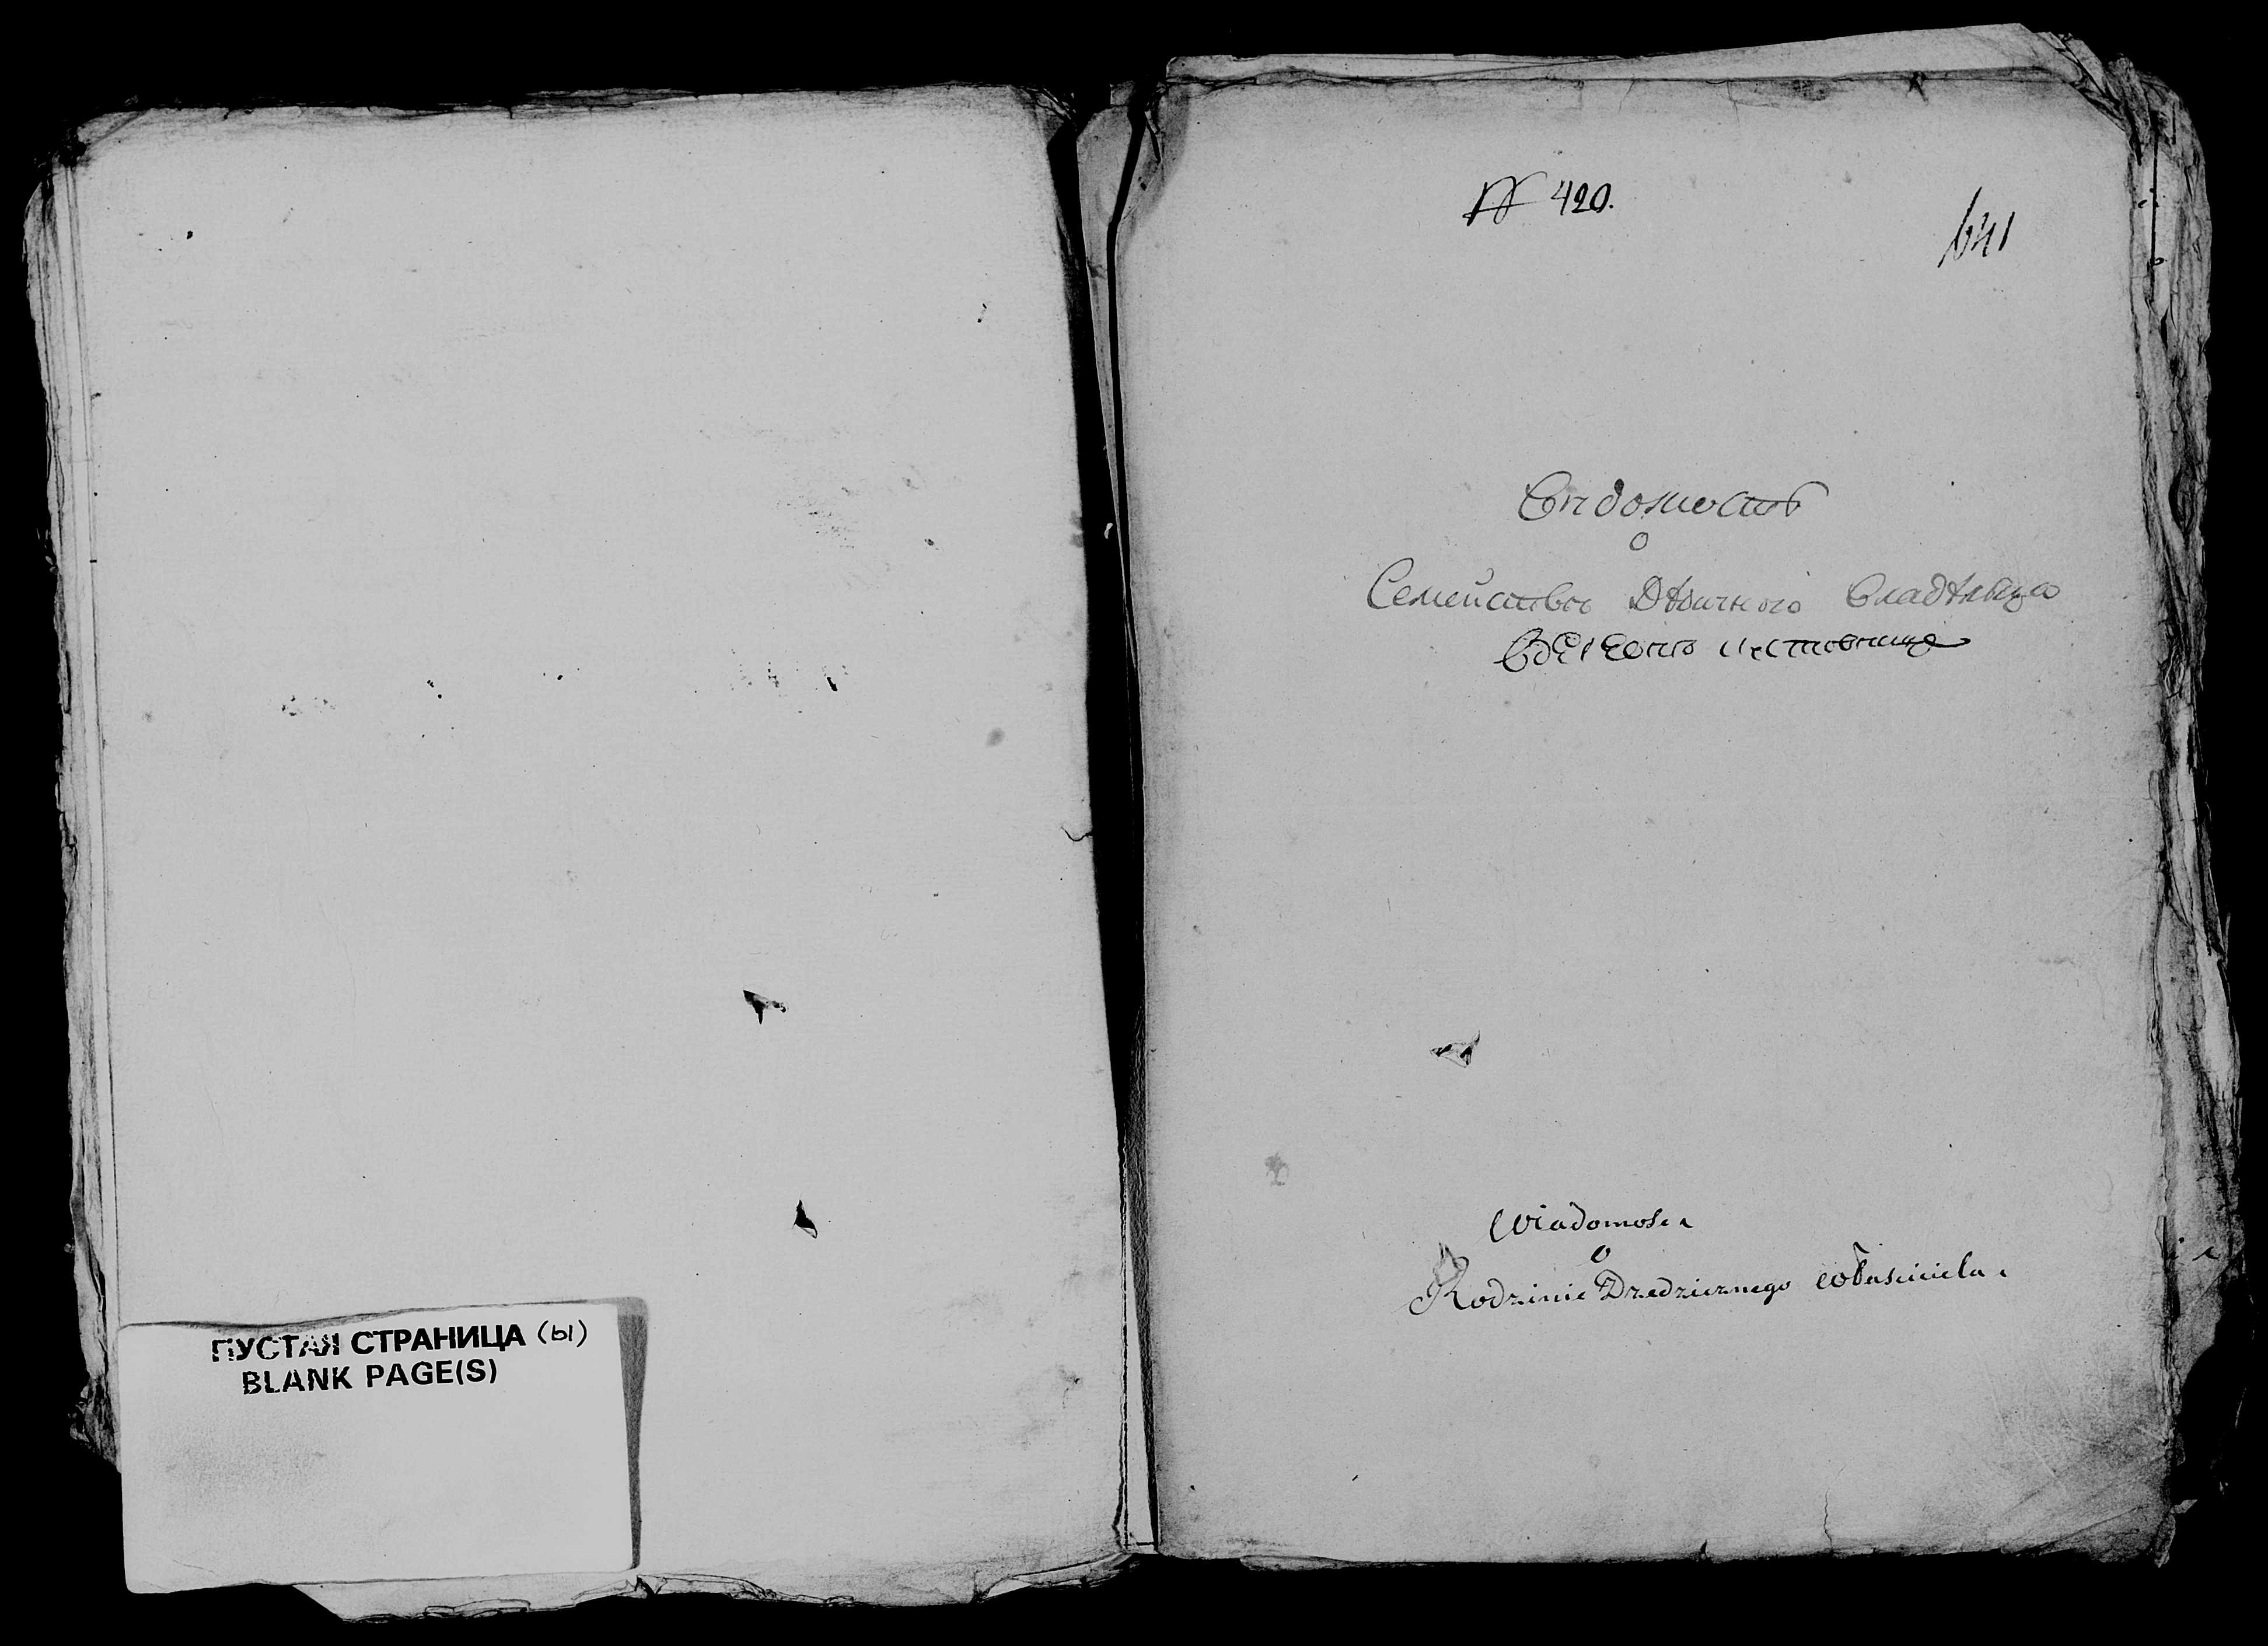 ПУСТАЯ СТРАНИЦА (ы)
BLANK PAGE(S)
№ 420.
641
Вѣдомость
о
Семействѣ Дѣдичного Владѣльца
Wiadomość
o
Rodzinie Dziedzicznego właściciela